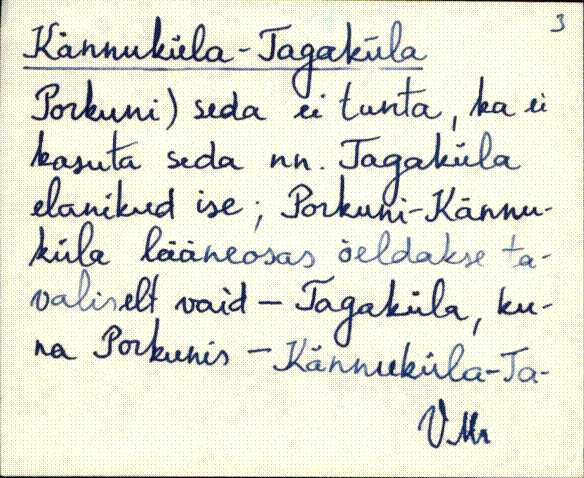 3
Kännuküla-Tagaküla
Porkuni) seda ei tunta, ka ei
kasuta seda nn. Tagaküla
elanikud ise; Porkuni-Kännu-
küla lääneosas öeldakse ta-
valiselt vaid - Tagaküla, ku-
na Porkunis - Kännuküla-Ta-